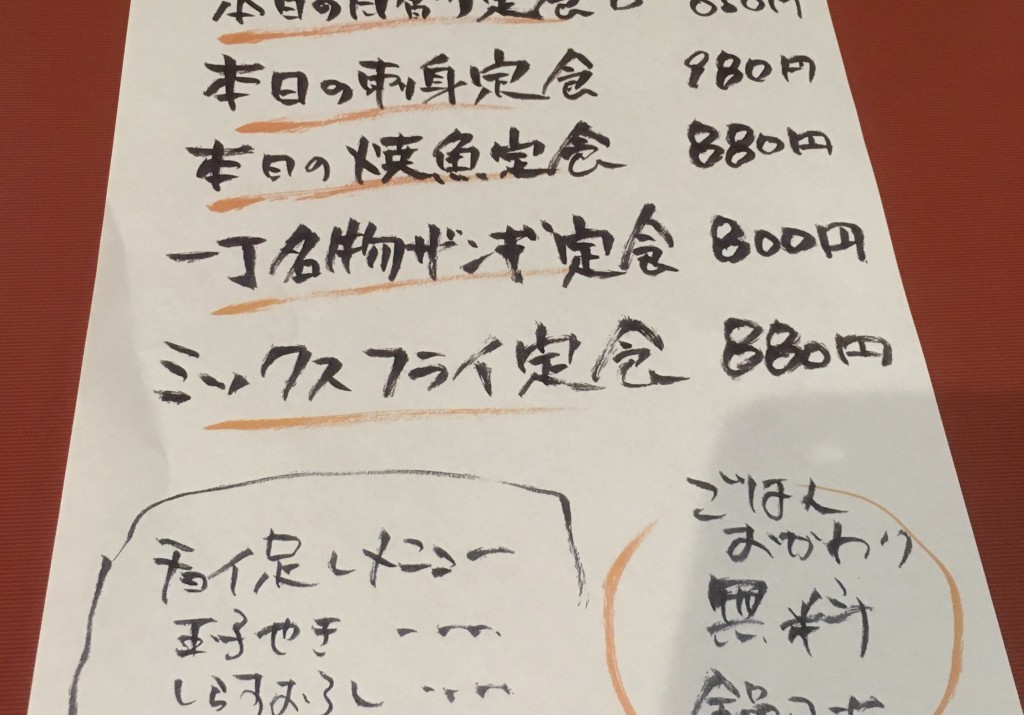 本日の日替り定食
本日の刺身定食 980円
本日の焼魚定食 880円
一丁名物ザンギ定食 800円
ミックスフライ定食 880円
チョイ足しメニュー
玉子やき
しらすおろし
ごはん
おかわり
無料